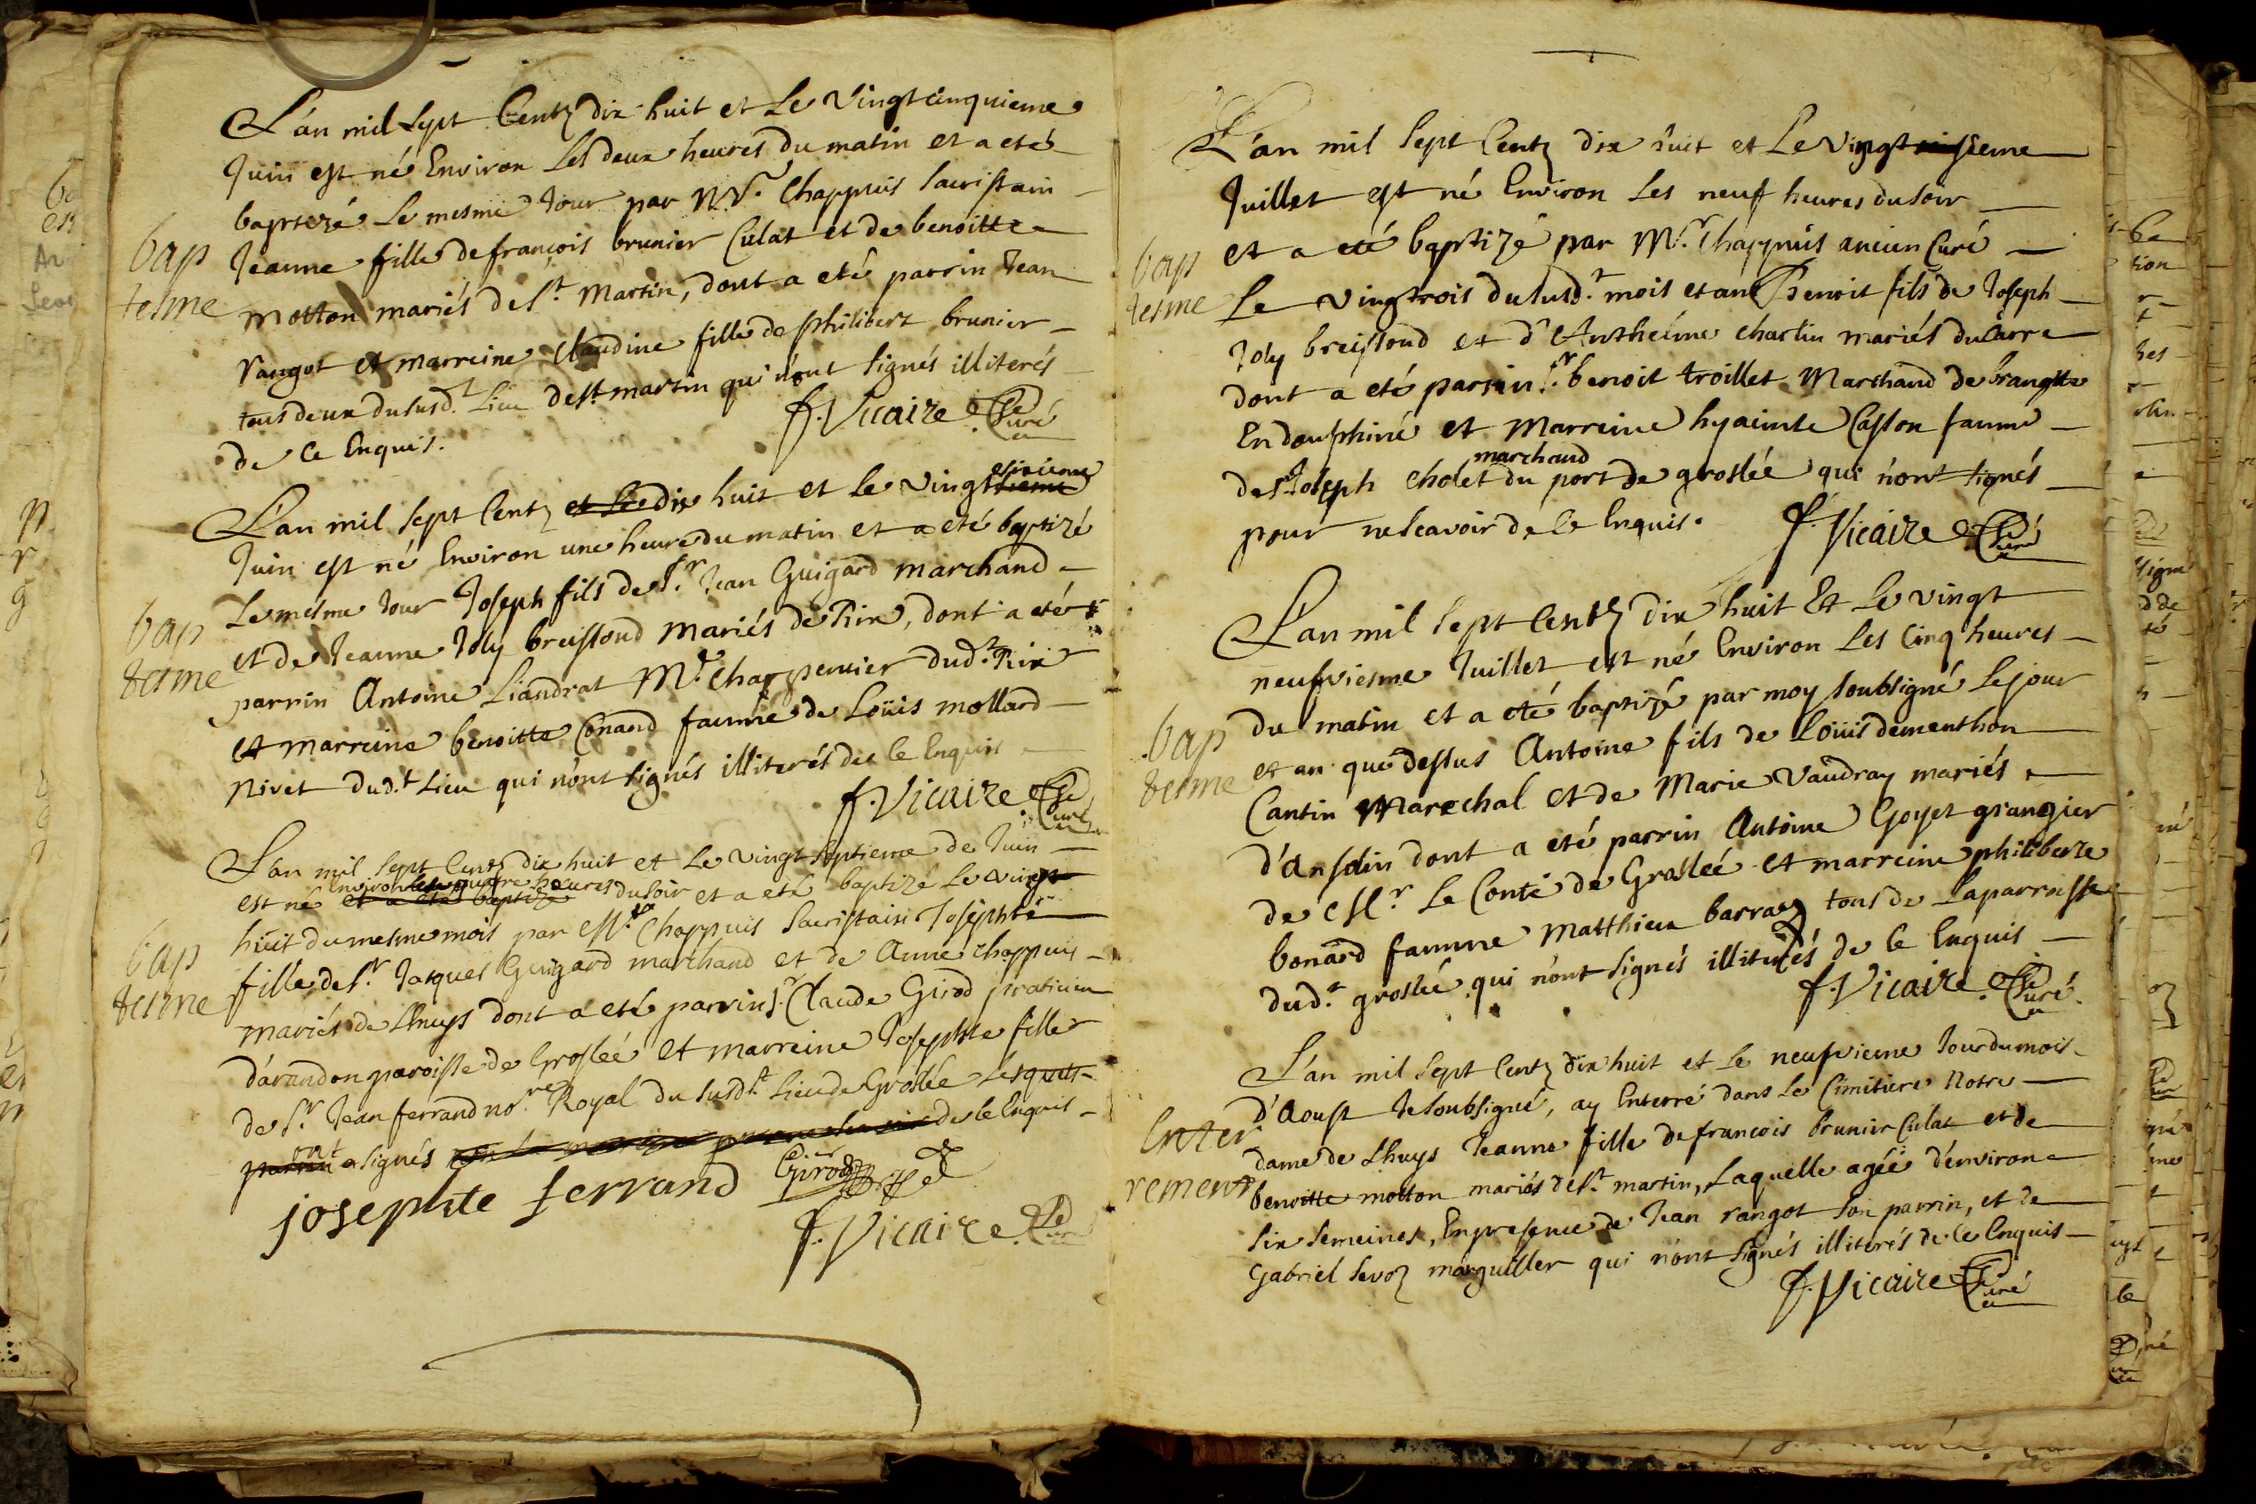 L'an mil sept Centz dix huit et Le vingt cinquieme
Juin est né Environ Les deux heures du matin et a eté
baptizé Le mesme Jour par Mr. Chappuis Sacristain
bap
tesme
Jeanne fille de francois brunier Culat et de benoitte
motton mariés de St. Martin, dont a eté parrin Jean
rangot et marreine Claudine fille de philibert brunier
tous deux du susd.t Lieu de St. martin qui n'ont signés illiterés
de Ce Enquis.
f. Vicaire Curé
L'an mil sept Centz et Le dix huit et le vingt sieme
sixieme
Juin est né Environ une heure du matin et a eté baptizé
Le mesme Jour Joseph fils de Sr. Jean Guigard marchand
bap
tesme
et de Jeanne Joly breissoud Mariés de Rix, dont a eté
parrin Antoine Liandrat Me. Charpentier dud.t Rix
et marreine benoitte Conand famme de Loüis mollard
Nivet dud.t Lieu qui n'ont signés illiterés de Ce Enquis
f. Vicaire Curé
L'an mil sept Centz dix huit et Le vingt septieme de Juin
Environ Les quatre heures
est né et a eté baptizé du soir et a eté baptizé Le vingt
huit du mesme mois par Mr. Chappuis Sacristain Josephte
bap
tesme
fille de Sr. Jacques Guigard marchand et de Anne Chappuis
mariés de Lhuys dont a eté parrin Sr. Claude Girod praticien
d'arandon paroisse de Groslée et marreine Josephte fille
de Sr. Jean ferrand no.re Royal du susd.t Lieu de Groslée Lesquels
ont
parrin a signés de Ce Enquis
josephte ferrand Girod
f. Vicaire Curé
L'an mil sept Centz dix huit et Le vingt sieme
Juillet est né Environ Les neuf heures du soir
et a eté baptizé par Mr. Chappuis ancien Curé
bap
tesme
Le vingtrois du susd.t mois et an Benoit fils de Joseph
Joly breissoud et d'Antheime Charlin mariés du Carre
dont a eté parrin Sr. benoit troillet Marchand de brangue
En dauphiné et Marreine hyacinte Caston famme
marchand
de Sr. Joseph Cholet du port de groslée qui n'ont signés
pour ne scavoir de Ce Enquis.
f. Vicaire Curé
L'an mil sept Centz dix huit Et Le vingt
neufviesme Juillet est né Environ Les Cinq heures
du matin et a eté baptizé par moy soubsigné Le jour
bap
tesme
et an que dessus Antoine fils de Loüis dementhon
Cantin Marechal et de Marie Vaudray mariés
d'Ansolin dont a eté parrin Antoine Goyet grangier
de Mr. Le Conte de Groslée et marreine philiberte
bonard famme Matthieu barraz tous de La parroisse
dud.t groslée qui n'ont signés illiterés de Ce Enquis
f. Vicaire Curé
L'an mil sept Centz dix huit et Le neufvieme Jour du mois
d'Aoust Je soubsigné, ay Enterré dans Le Cimitiere Notre
Enter
rement
dame de Lhuys Jeanne fille de francois brunier Culat et de
benoitte motton mariés de St. martin, Laquelle agée d'environ
six semeines, En presence de Jean rangot son parrin, et de
Gabriel Sevoz marguiller qui n'ont signés illiterés de Ce Enquis
f. Vicaire Curé